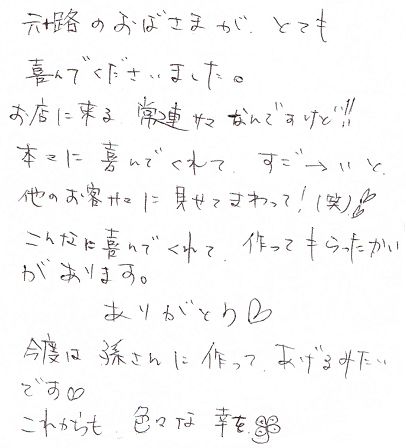 還暦のおばさまが、とても
喜んでくださいました。
お店に来る 常連サマ なんですけど!!
本当に 喜んでくれて、すご→いと、
他のお客サマに 見せてまわって!(笑)
こんなに喜んでくれて、作ってもらったかい
があります。
ありがとう♡
今度は 孫さんに 作って、あげるみたい
です♡
これからも、色々な 幸を